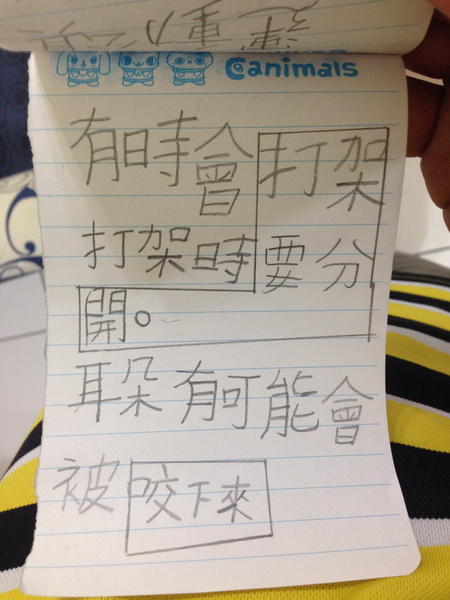 @animals
有時會打架
打架時要分
開。
耳朵有可能會
被咬下來